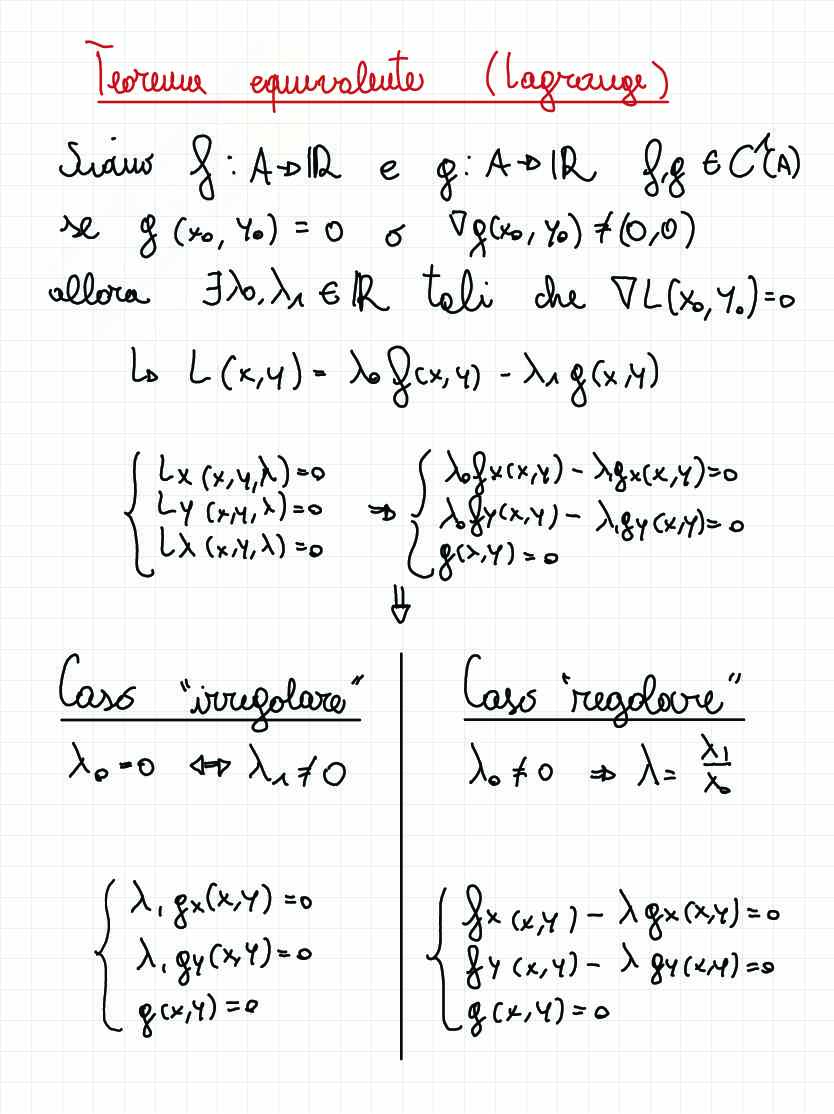 Teorema equivalente (Lagrange)
Siano f: A→ℝ e g: A→ℝ f,g ∈ C¹(A)
se g(x₀, y₀) = 0 o ∇g(x₀, y₀) ≠ (0,0)
allora ∃λ₀, λ₁ ∈ ℝ tali che ∇L(x₀, y₀) = 0
↳ L(x,y) = λ₀ f(x,y) - λ₁ g(x,y)
{ Lx (x,y,λ) = 0 ⇒ { λ₀fx(x,y) - λ₁gx(x,y) = 0
Ly (x,y,λ) = 0 λ₀fy(x,y) - λ₁gy(x,y) = 0
Lλ (x,y,λ) = 0 g(x,y) = 0
⇓
Caso "irregolare"
λ₀ = 0 ⇔ λ₁ ≠ 0
{ λ₁ gx(x,y) = 0
λ₁ gy(x,y) = 0
g(x,y) = 0
Caso "regolare"
λ₀ ≠ 0 ⇒ λ = λ₁/λ₀
{ fx (x,y) - λ gx(x,y) = 0
fy (x,y) - λ gy(x,y) = 0
g(x,y) = 0